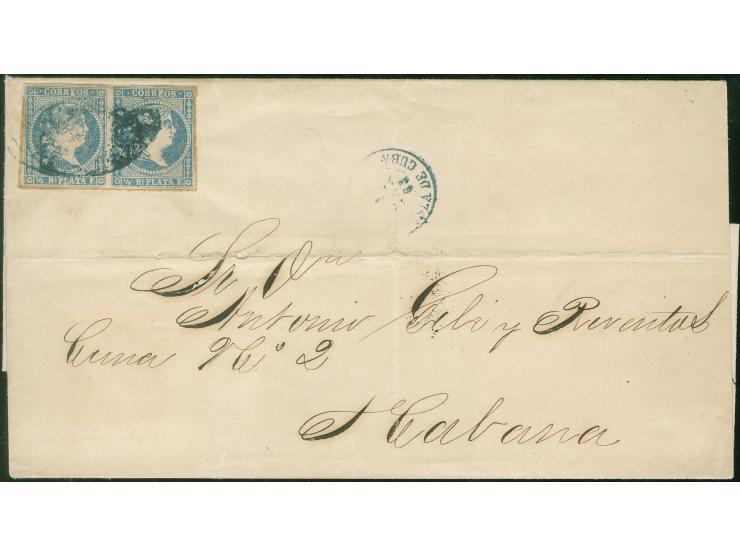 CORREOS CORREOS
½ Rl. PLATA F. ½ Rl. PLATA F.
DE CUBA
Sr Dn
Antonio Gibi y Reventos
Cuna No. 2
Habana